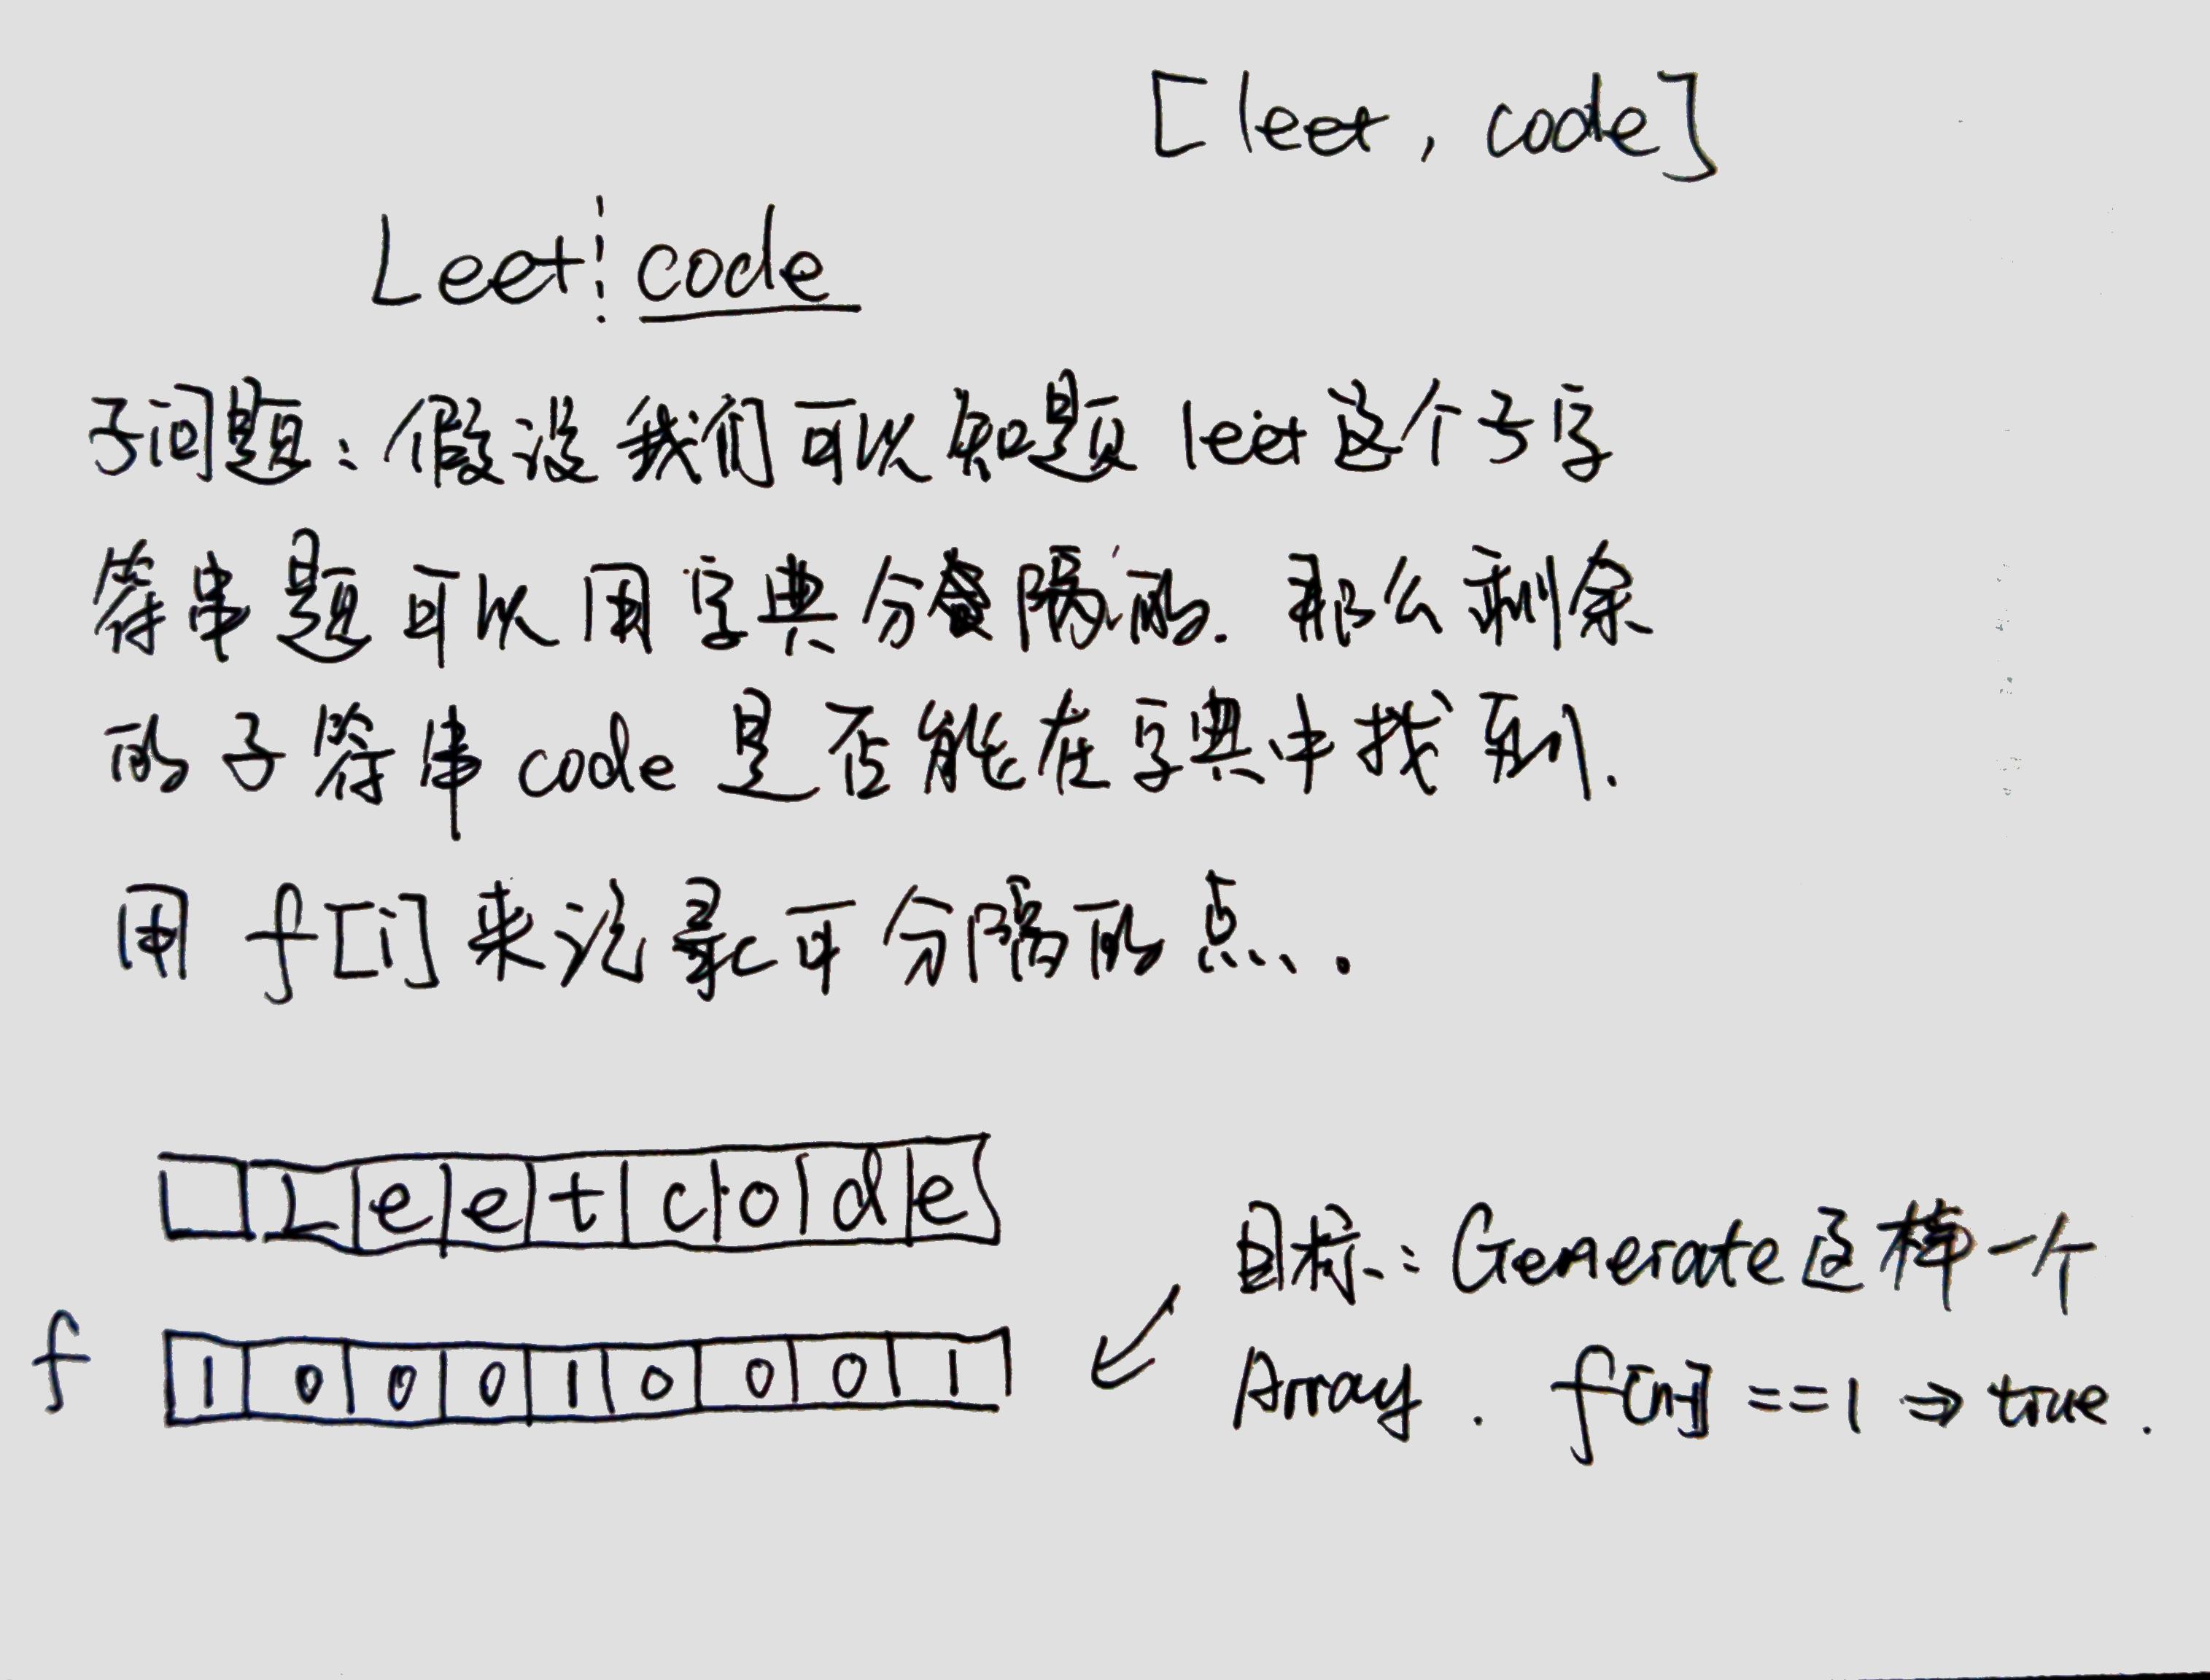 [leet, code]
Leet code
子问题：假设我们可以知题 leet 这个子字
符串题可以用字典分隔的. 那么剩余
的子符串 code 是否能在字典中找到.
用 f[i] 来记录可分隔的点.
L e e t c o d e
目标: Generate 这样一个
f 1 0 0 0 1 0 0 0 1
Array. f[n] == 1 ⇒ true.